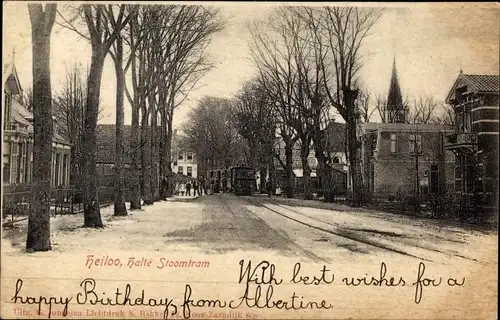 Heiloo, Halte Stoomtram
With best wishes for a
happy Birthday from Albertine
Lichtdruk